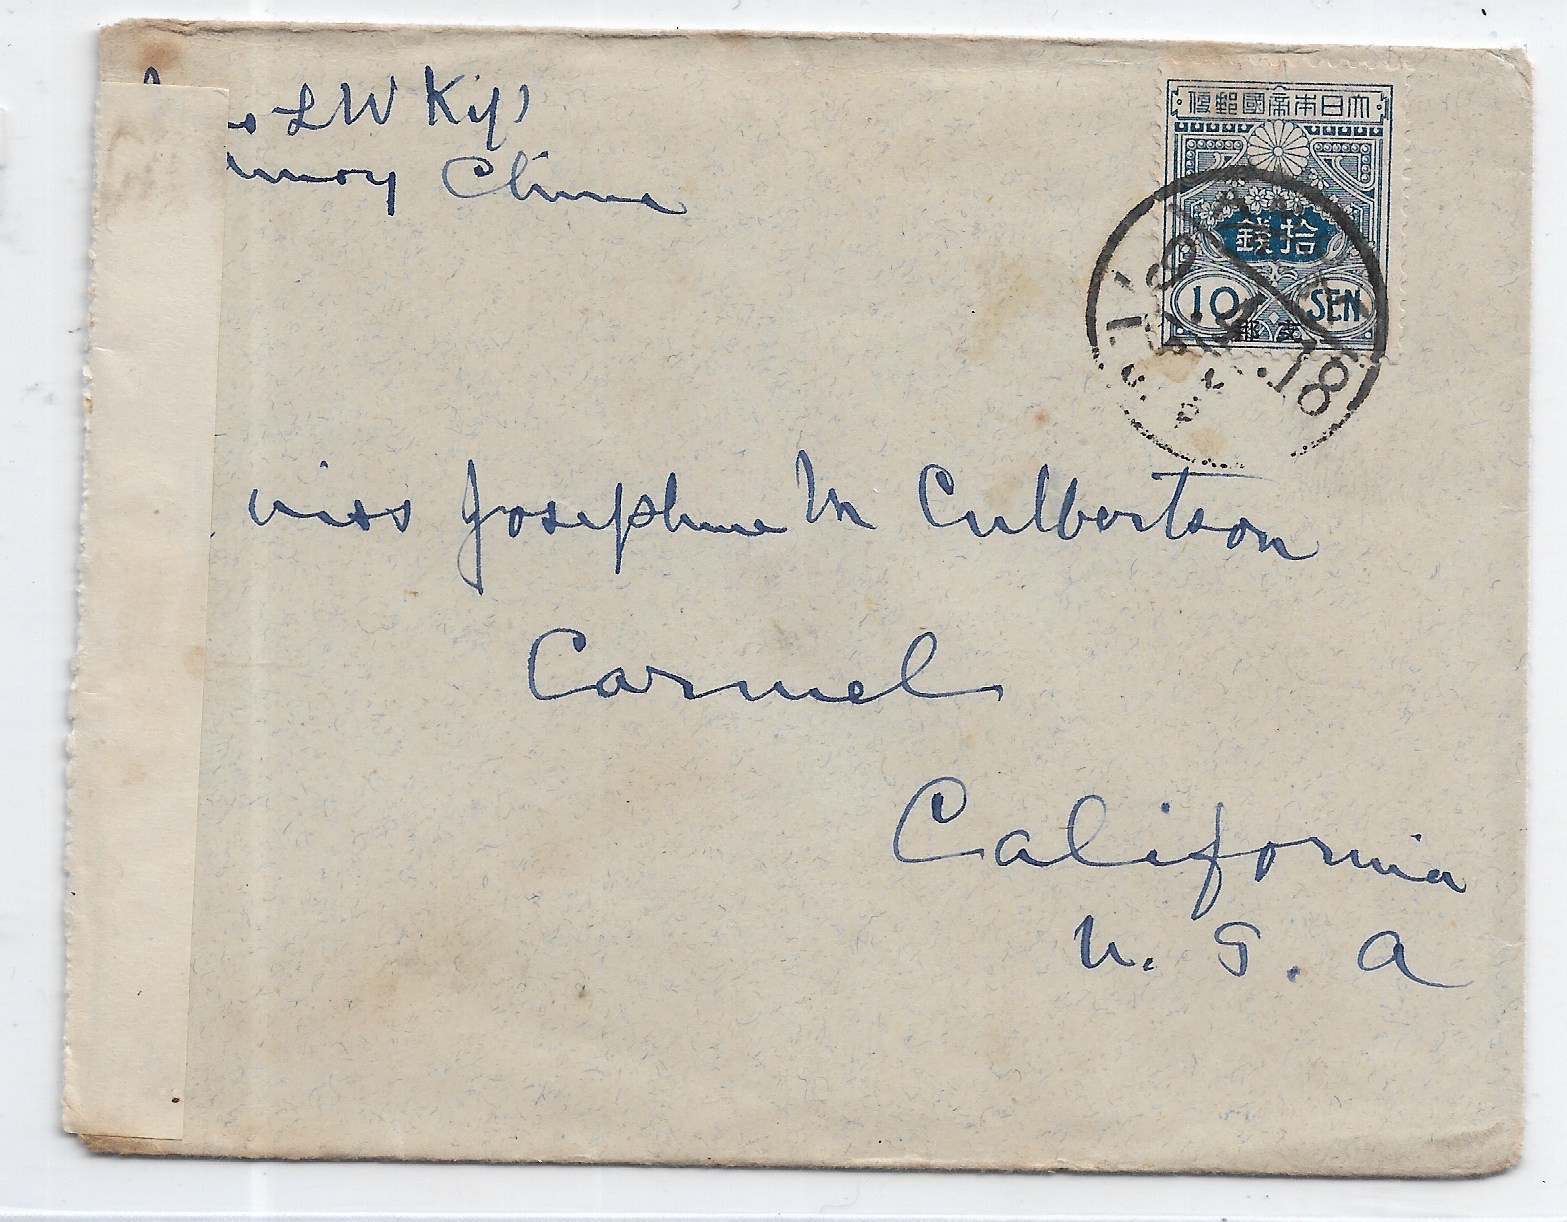 L W Kip
Amoy China
大日本帝國郵便
拾錢
10 SEN
支那
18
Miss Josephine M Culbertson
Carmel
California
U. S. A